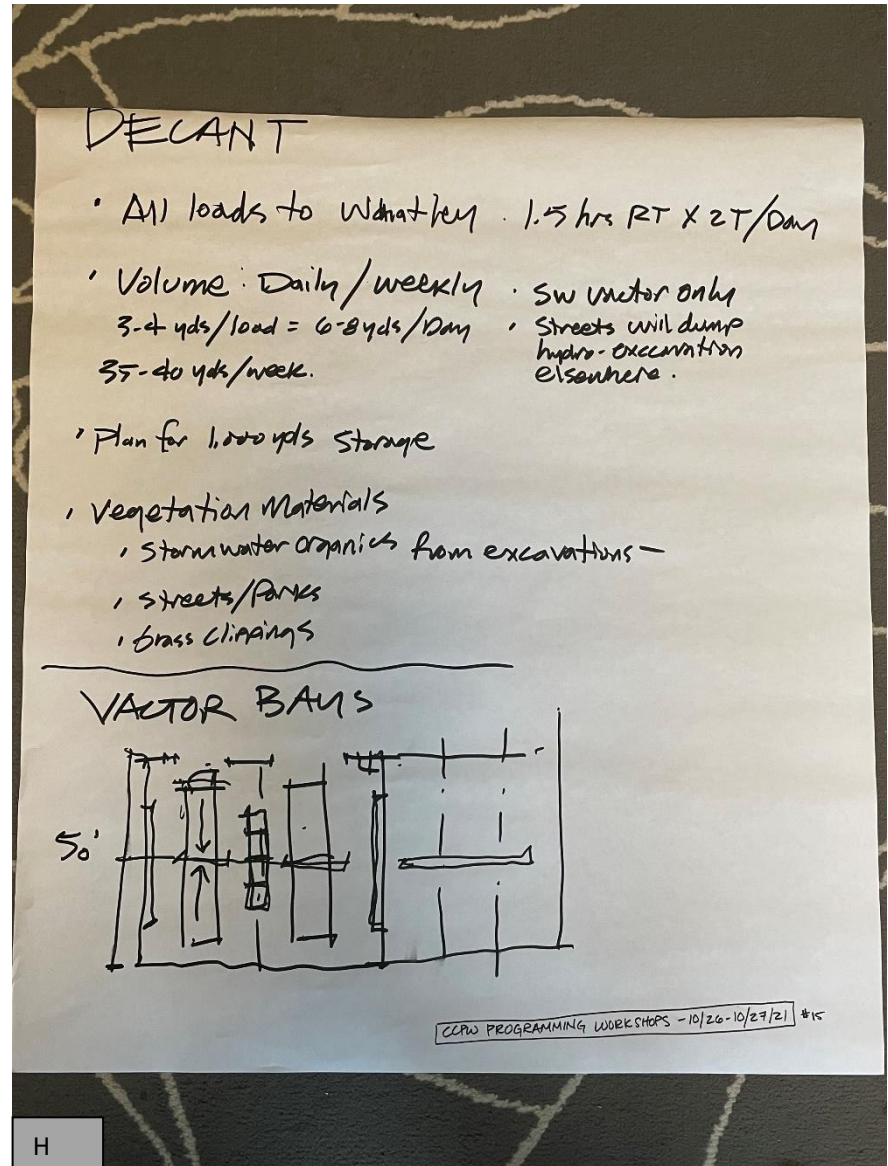 DECANT
· All loads to Whatley · 1.5 hrs RT X 2T/Day
· Volume: Daily/weekly
3-4 yds/load = 6-8 yds/Day
35-40 yds/week.
· SW vactor only
· Streets will dump
hydro-excavation
elsewhere.
· Plan for 1,000 yds Storage
· Vegetation Materials
· Stormwater organics from excavations —
· Streets/Parks
· Grass Clippings
VACTOR BAYS
50'
CCPW PROGRAMMING WORKSHOPS - 10/26-10/27/21 #15
H